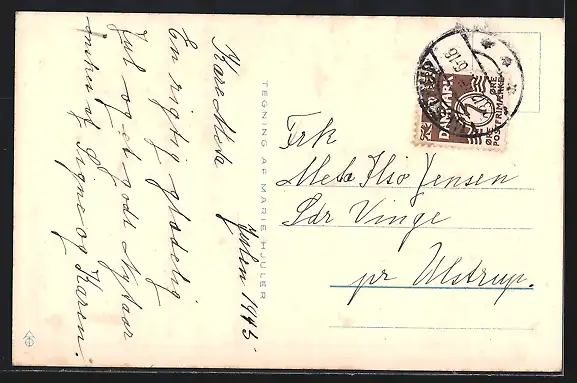 Kære Meta Julen 1945
En rigtig glædelig
Jul og et godt Nytaar
ønskes af Signe og Karen.
TEGNING AF MARIE HJULER
Frk
Meta Jensen
Sdr Vinge
pr Ulstrup.
DANMARK
7
ØRE
POSTFRIMÆRKE